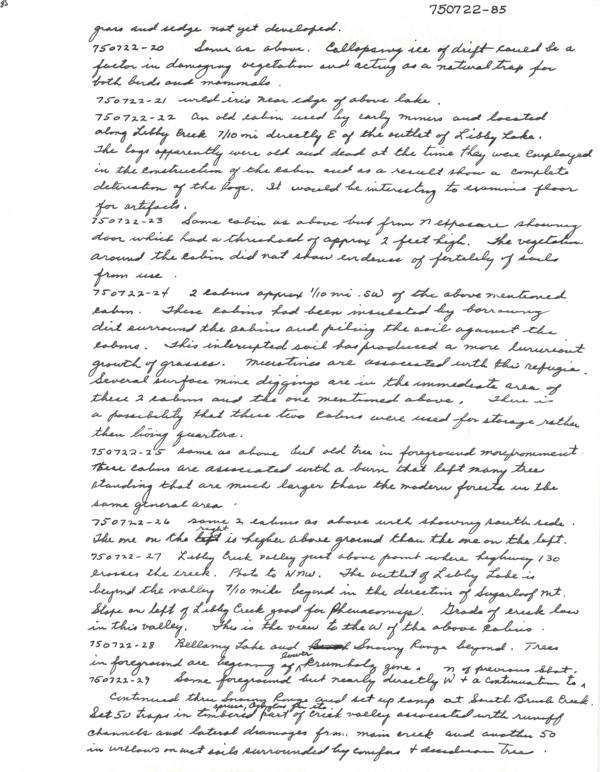 750722-85
grass and sedge not yet developed.
750722-20 Same as above. Collapsing ice of drift could be a
factor in damaging vegetation and acting as a natural trap for
both birds and mammals.
750722-21 wild iris near edge of above lake.
750722-22 An old cabin used by early miners and located
along Libby Creek 7/10 mi directly E of the outlet of Libby Lake.
The logs apparently were old and dead at the time they were employed
in the construction of the cabin and as a result show a complete
of the logs. It would be interesting to examine floor
for artifacts.
750722-23 Same cabin as above but from N exposure showing
door which had a threshold of approx 2 feet high. The vegetation
around the cabin did not show evidence of fertility of soils
from use.
750722-24 2 cabins approx 1/10 mi. SW of the above mentioned
cabin. These cabins had been insulated by borrowing
dirt surround the cabins and piling the soil against the
cabins. This interupted soil has produced a more
growth of grasses. Microtines are associated with this refugia.
Several surface mine diggings are in the immediate area of
these 2 cabins and the one mentioned above. There is
a possibility that these two cabins were used for storage rather
than living quarters.
750722-25 same as above but old tree in foreground more prominent.
These cabins are associated with a burn that left many tree
standing that are much larger than the modern forests in the
same general area.
750722-26 same 2 cabins as above with showing south side.
right
The one on the left is higher above ground than the one on the left.
750722-27 Libby Creek valley just above point where highway 130
crosses the creek. Photo to WNW. The outlet of Libby Lake is
beyond the valley 7/10 mile beyond in the direction of Sugarloaf Mt.
Slope on left of Libby Creek good for Phenacomys. Grade of creek low
in this valley. This is the view to the W of the above cabins.
750722-28 Bellamy Lake and Snowy Range beyond. Trees
lower
in foreground are beginning of Krumholz zone. N of previous shot.
750722-29 Same foreground but nearly directly W + a continuation to
Continued thru Snowy Range and set up camp at South Brush Creek.
spruce,
Set 50 traps in timbered part of creek valley associated with runoff
channels and lateral drainages frm. main creek and another 50
in willows on wet soils surrounded by conifers + deciduous tree.